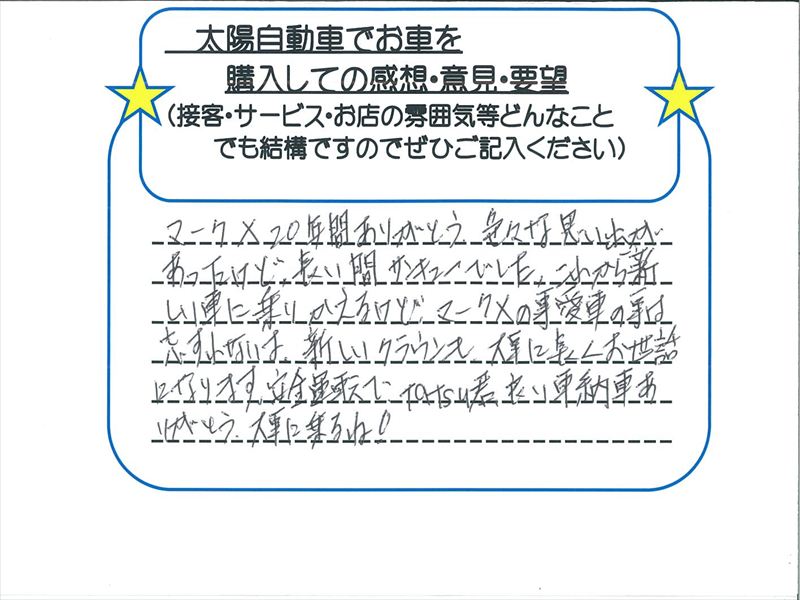 太陽自動車でお車を
購入しての感想・意見・要望
（接客・サービス・お店の雰囲気等どんなこと
でも結構ですのでぜひご記入ください）
マークX 20年間ありがとう 色々な思い出が
あったけど、長い間サンキューでした、これから新
しい車に乗りかえるけど マークXの事愛車の事は
忘すれないは、新しいクラウンも 大事に長くお世話
になります。安全運転で tatsu君 良い車納車あ
りがとう、大事に乗るね!!